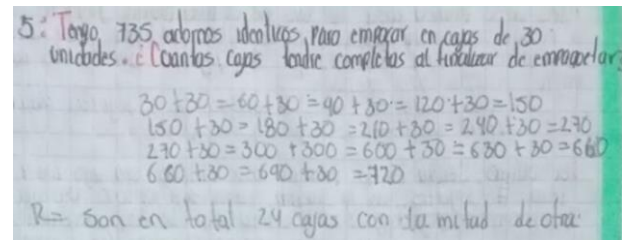 5: Tengo 735 adornos identicos, para empacar en cajas de 30
unidades. ¿Cuantas cajas tendre completas al finalizar de empaquetar?
30+30=60+30=90+30=120+30=150
150+30=180+30=210+30=240+30=270
270+30=300+300=600+30=630+30=660
660+30=690+30=720
R= Son en total 24 cajas con la mitad de otra